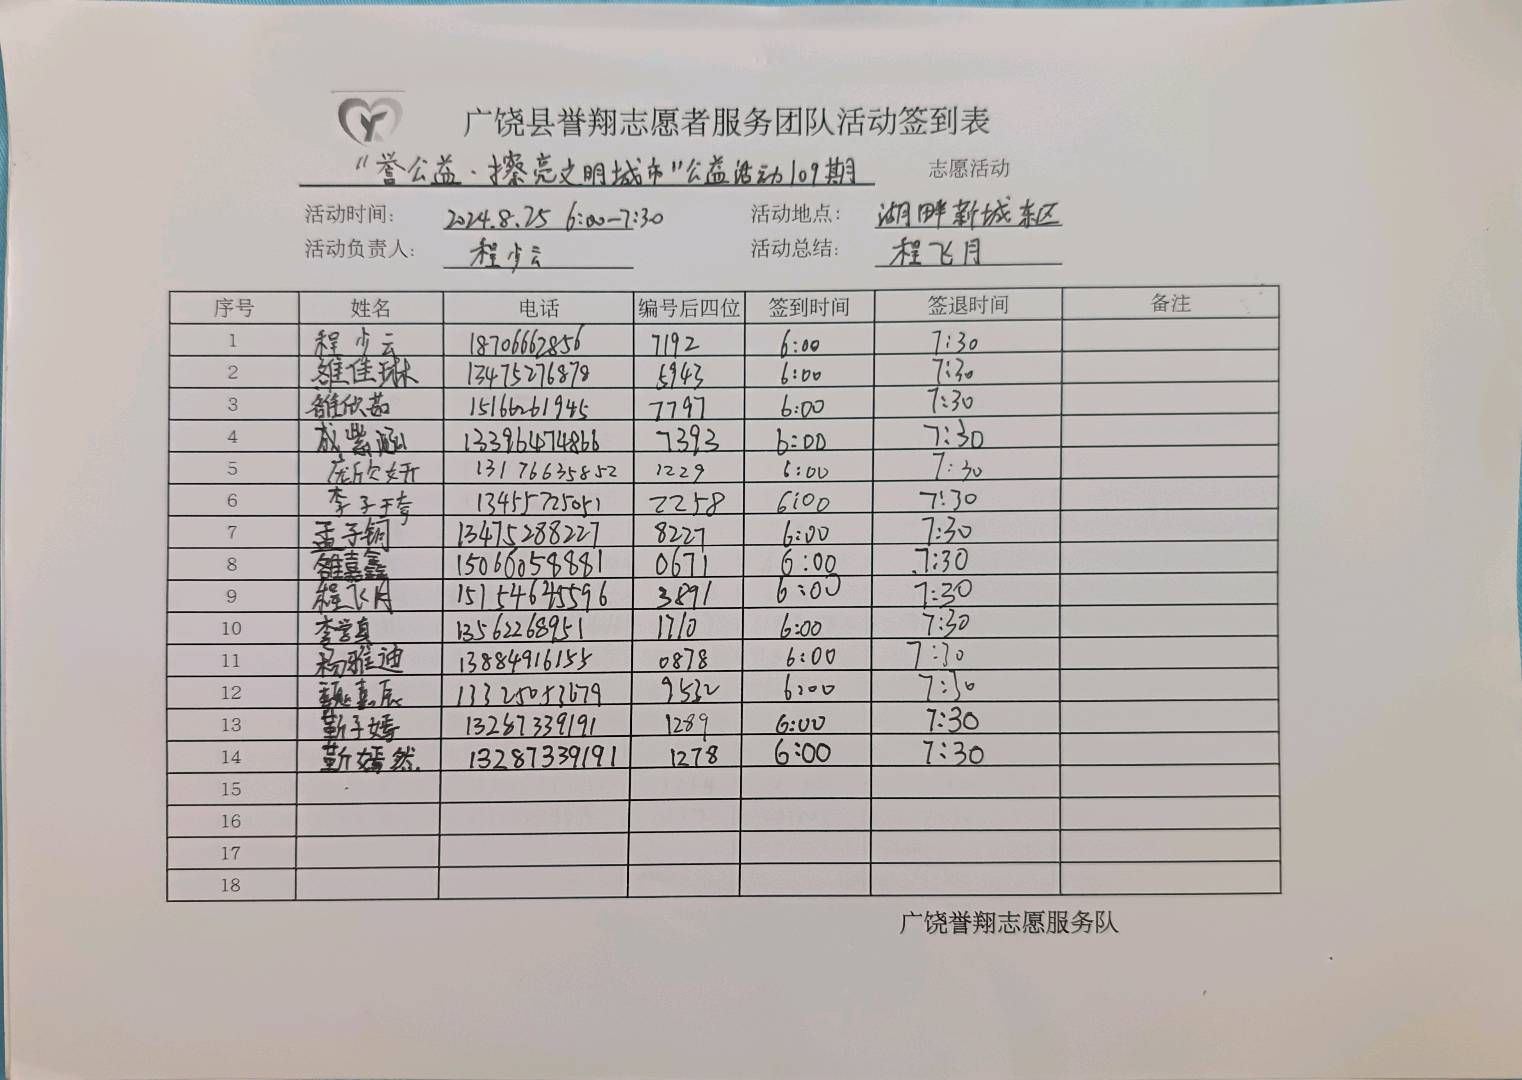 广饶县誉翔志愿者服务团队活动签到表
“誉公益·擦亮文明城市”公益活动109期 志愿活动
活动时间: 2024.8.25 6:00-7:30 活动地点: 湖畔新城东区
活动负责人: 程少云 活动总结: 程飞月
序号 姓名 电话 编号后四位 签到时间 签退时间 备注
1 程少云 18706662856 7192 6:00 7:30
2 雒佳琳 13475276878 5943 6:00 7:30
3 雒欣茹 15166261945 7797 6:00 7:30
4 成紫涵 13396474866 7393 6:00 7:30
5 庞欣妍 13176635852 1229 6:00 7:30
6 李子 13455725051 2258 6:00 7:30
7 孟子钥 13475288227 8227 6:00 7:30
8 雒嘉鑫 15066058881 0671 6:00 7:30
9 程飞月 15154645596 3891 6:00 7:30
10 李学真 13562268951 1710 6:00 7:30
11 杨雅迪 13884916155 0878 6:00 7:30
12 魏嘉辰 9532 6:00 7:30
13 靳子嫣 13287339191 1289 6:00 7:30
14 靳嫣然 13287339191 1278 6:00 7:30
15
16
17
18
广饶誉翔志愿服务队